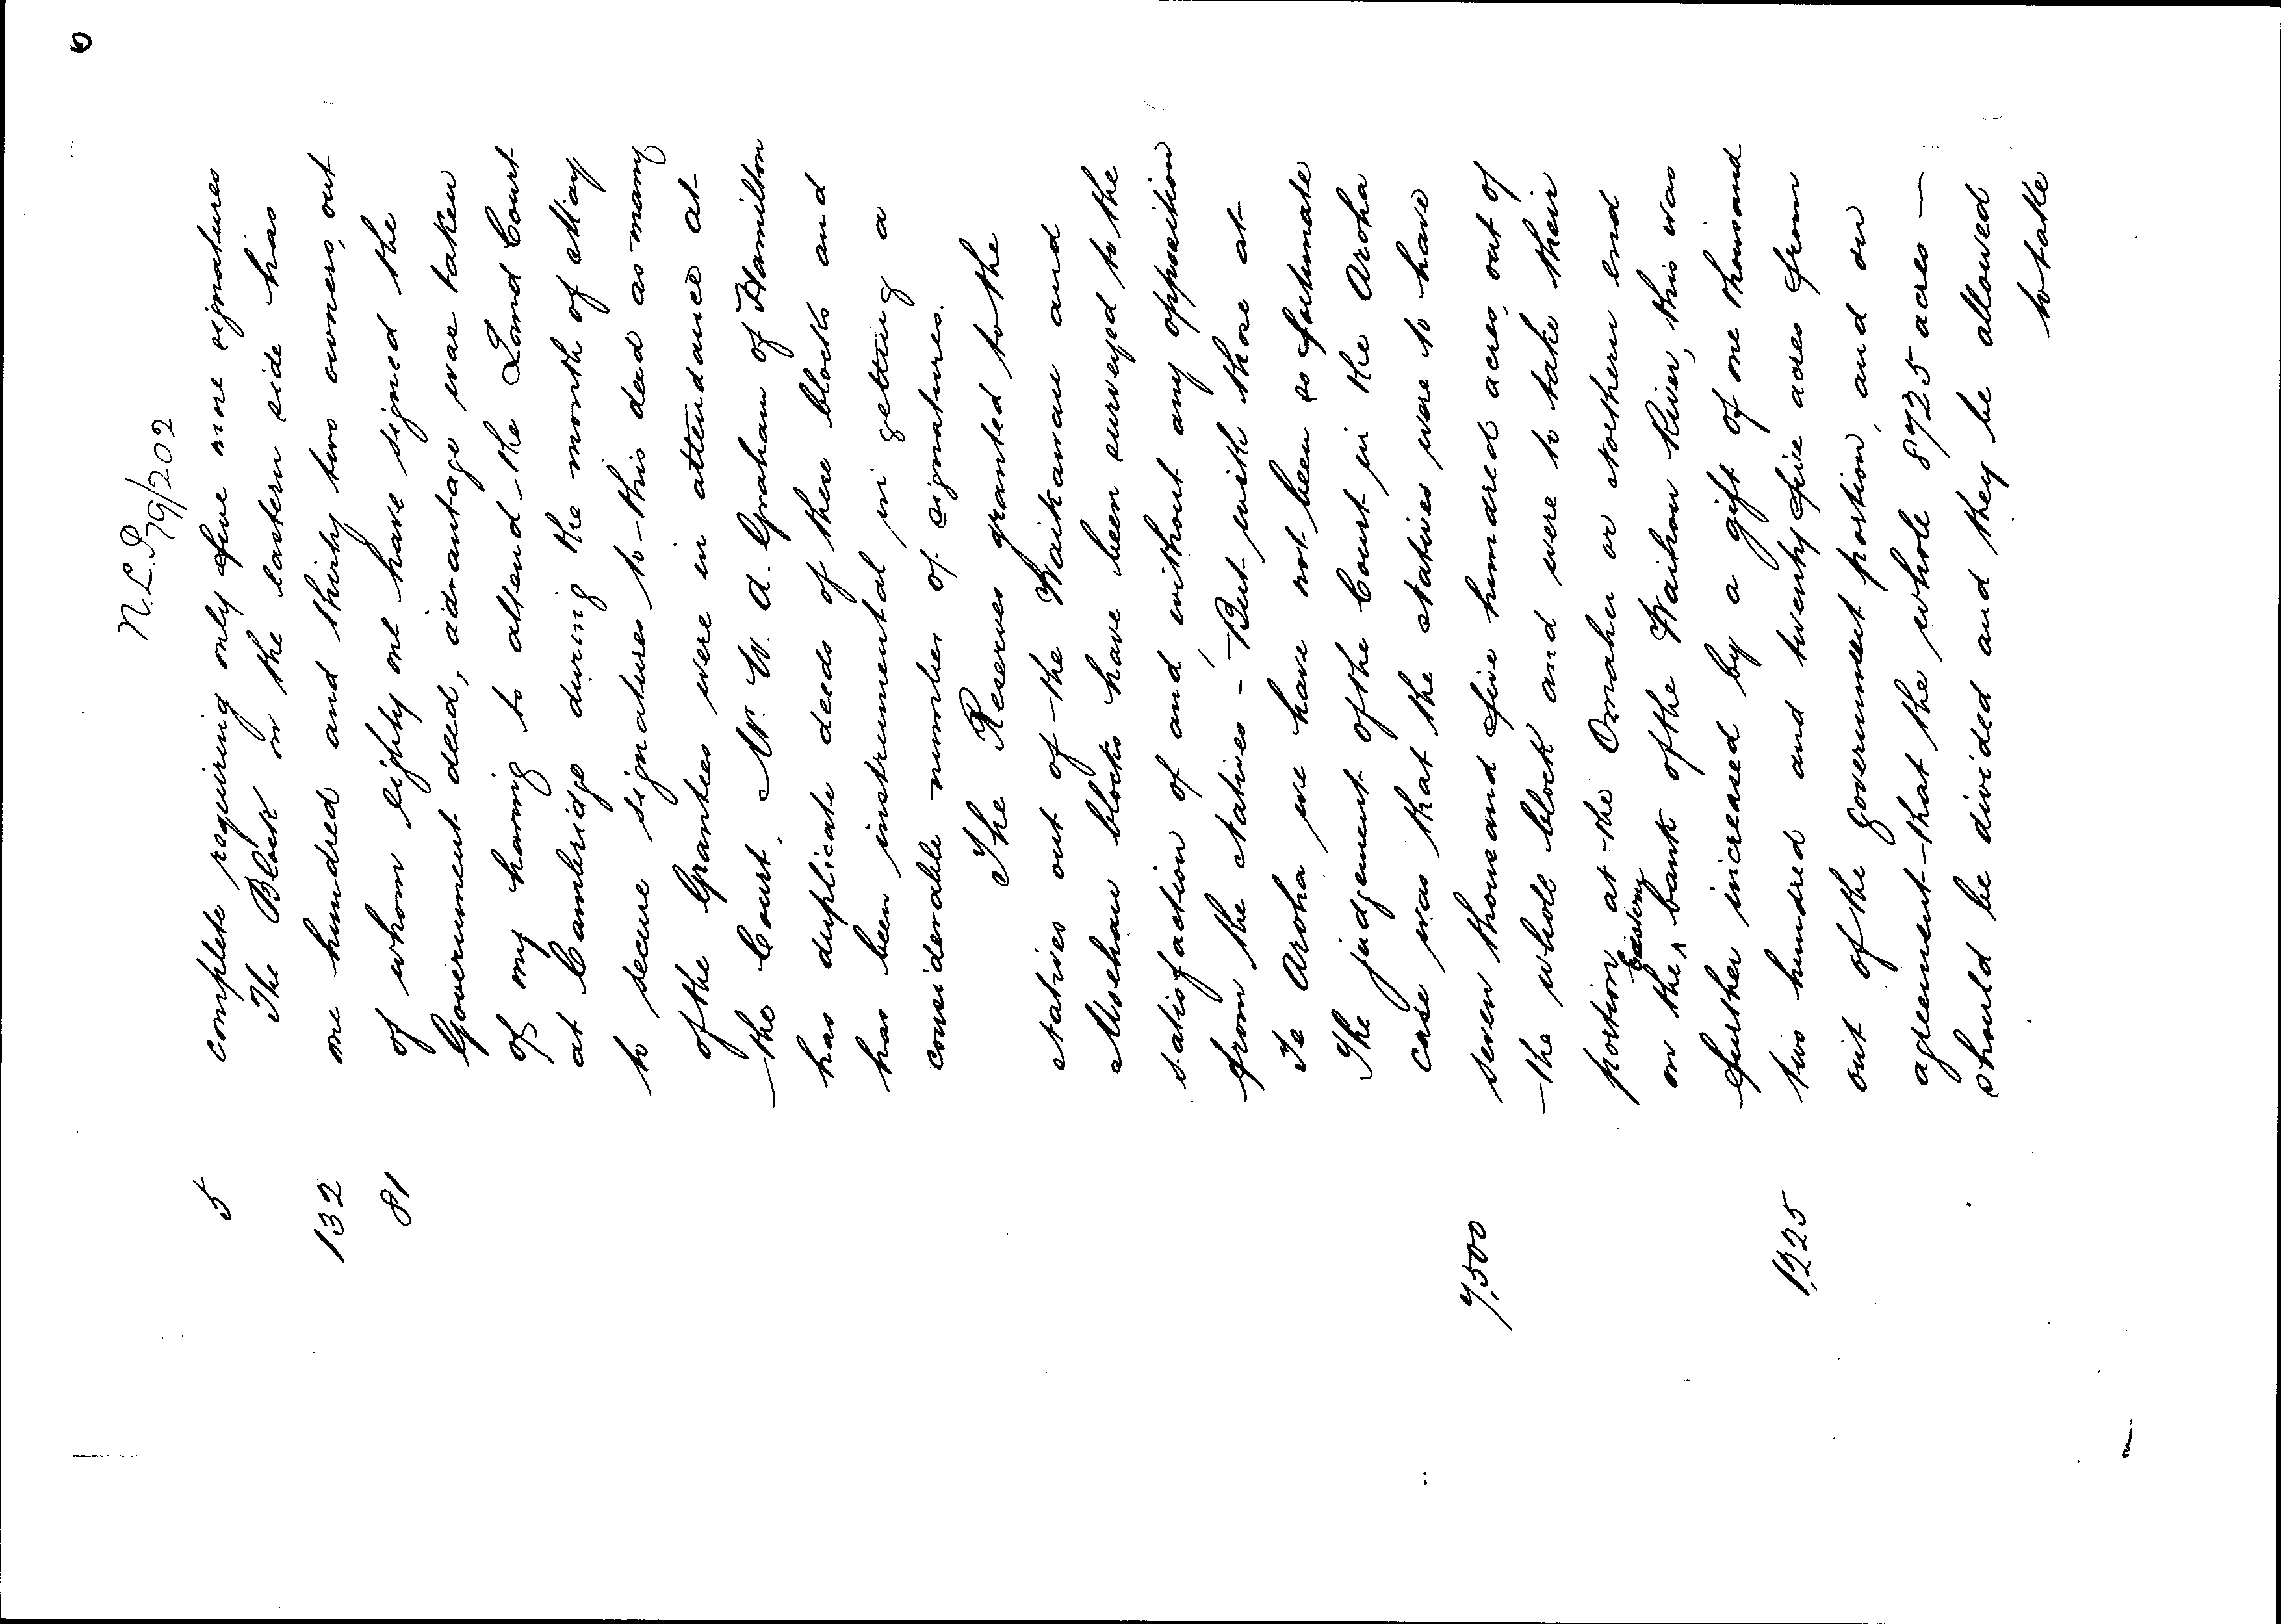 6
N.L.P. 79/202
5 complete requiring only five more signatures
The Block on the eastern side has
132 one hundred and thirty two owners, out
81 of whom eighty one have signed the
Government deed, advantage was taken
of my having to attend the Land Court
at Cambridge during the month of May
to secure signatures to this deed as many
of the Grantees were in attendance at
the Court. Mr. W. A. Graham of Hamilton
has duplicate deeds of these blocks and
has been instrumental in getting a
considerable number of signatures.
The Reserves granted to the
natives out of the Waiharakeke and
blocks have been surveyed to the
satisfaction of and without any opposition
from the Natives - But with those at
Te Aroha we have not been so fortunate
The judgement of the Court in the Aroha
case was that the natives were to have
7,500 seven thousand five hundred acres, out of
the whole block and were to take their
portion at the Omahu or Northern end
on the Eastern bank of the Waihou River, this was
further increased by a gift of one thousand
1,225 two hundred and twenty five acres from
out of the government portion, and on
agreement that the whole 8725 acres -
should be divided and they be allowed
to take